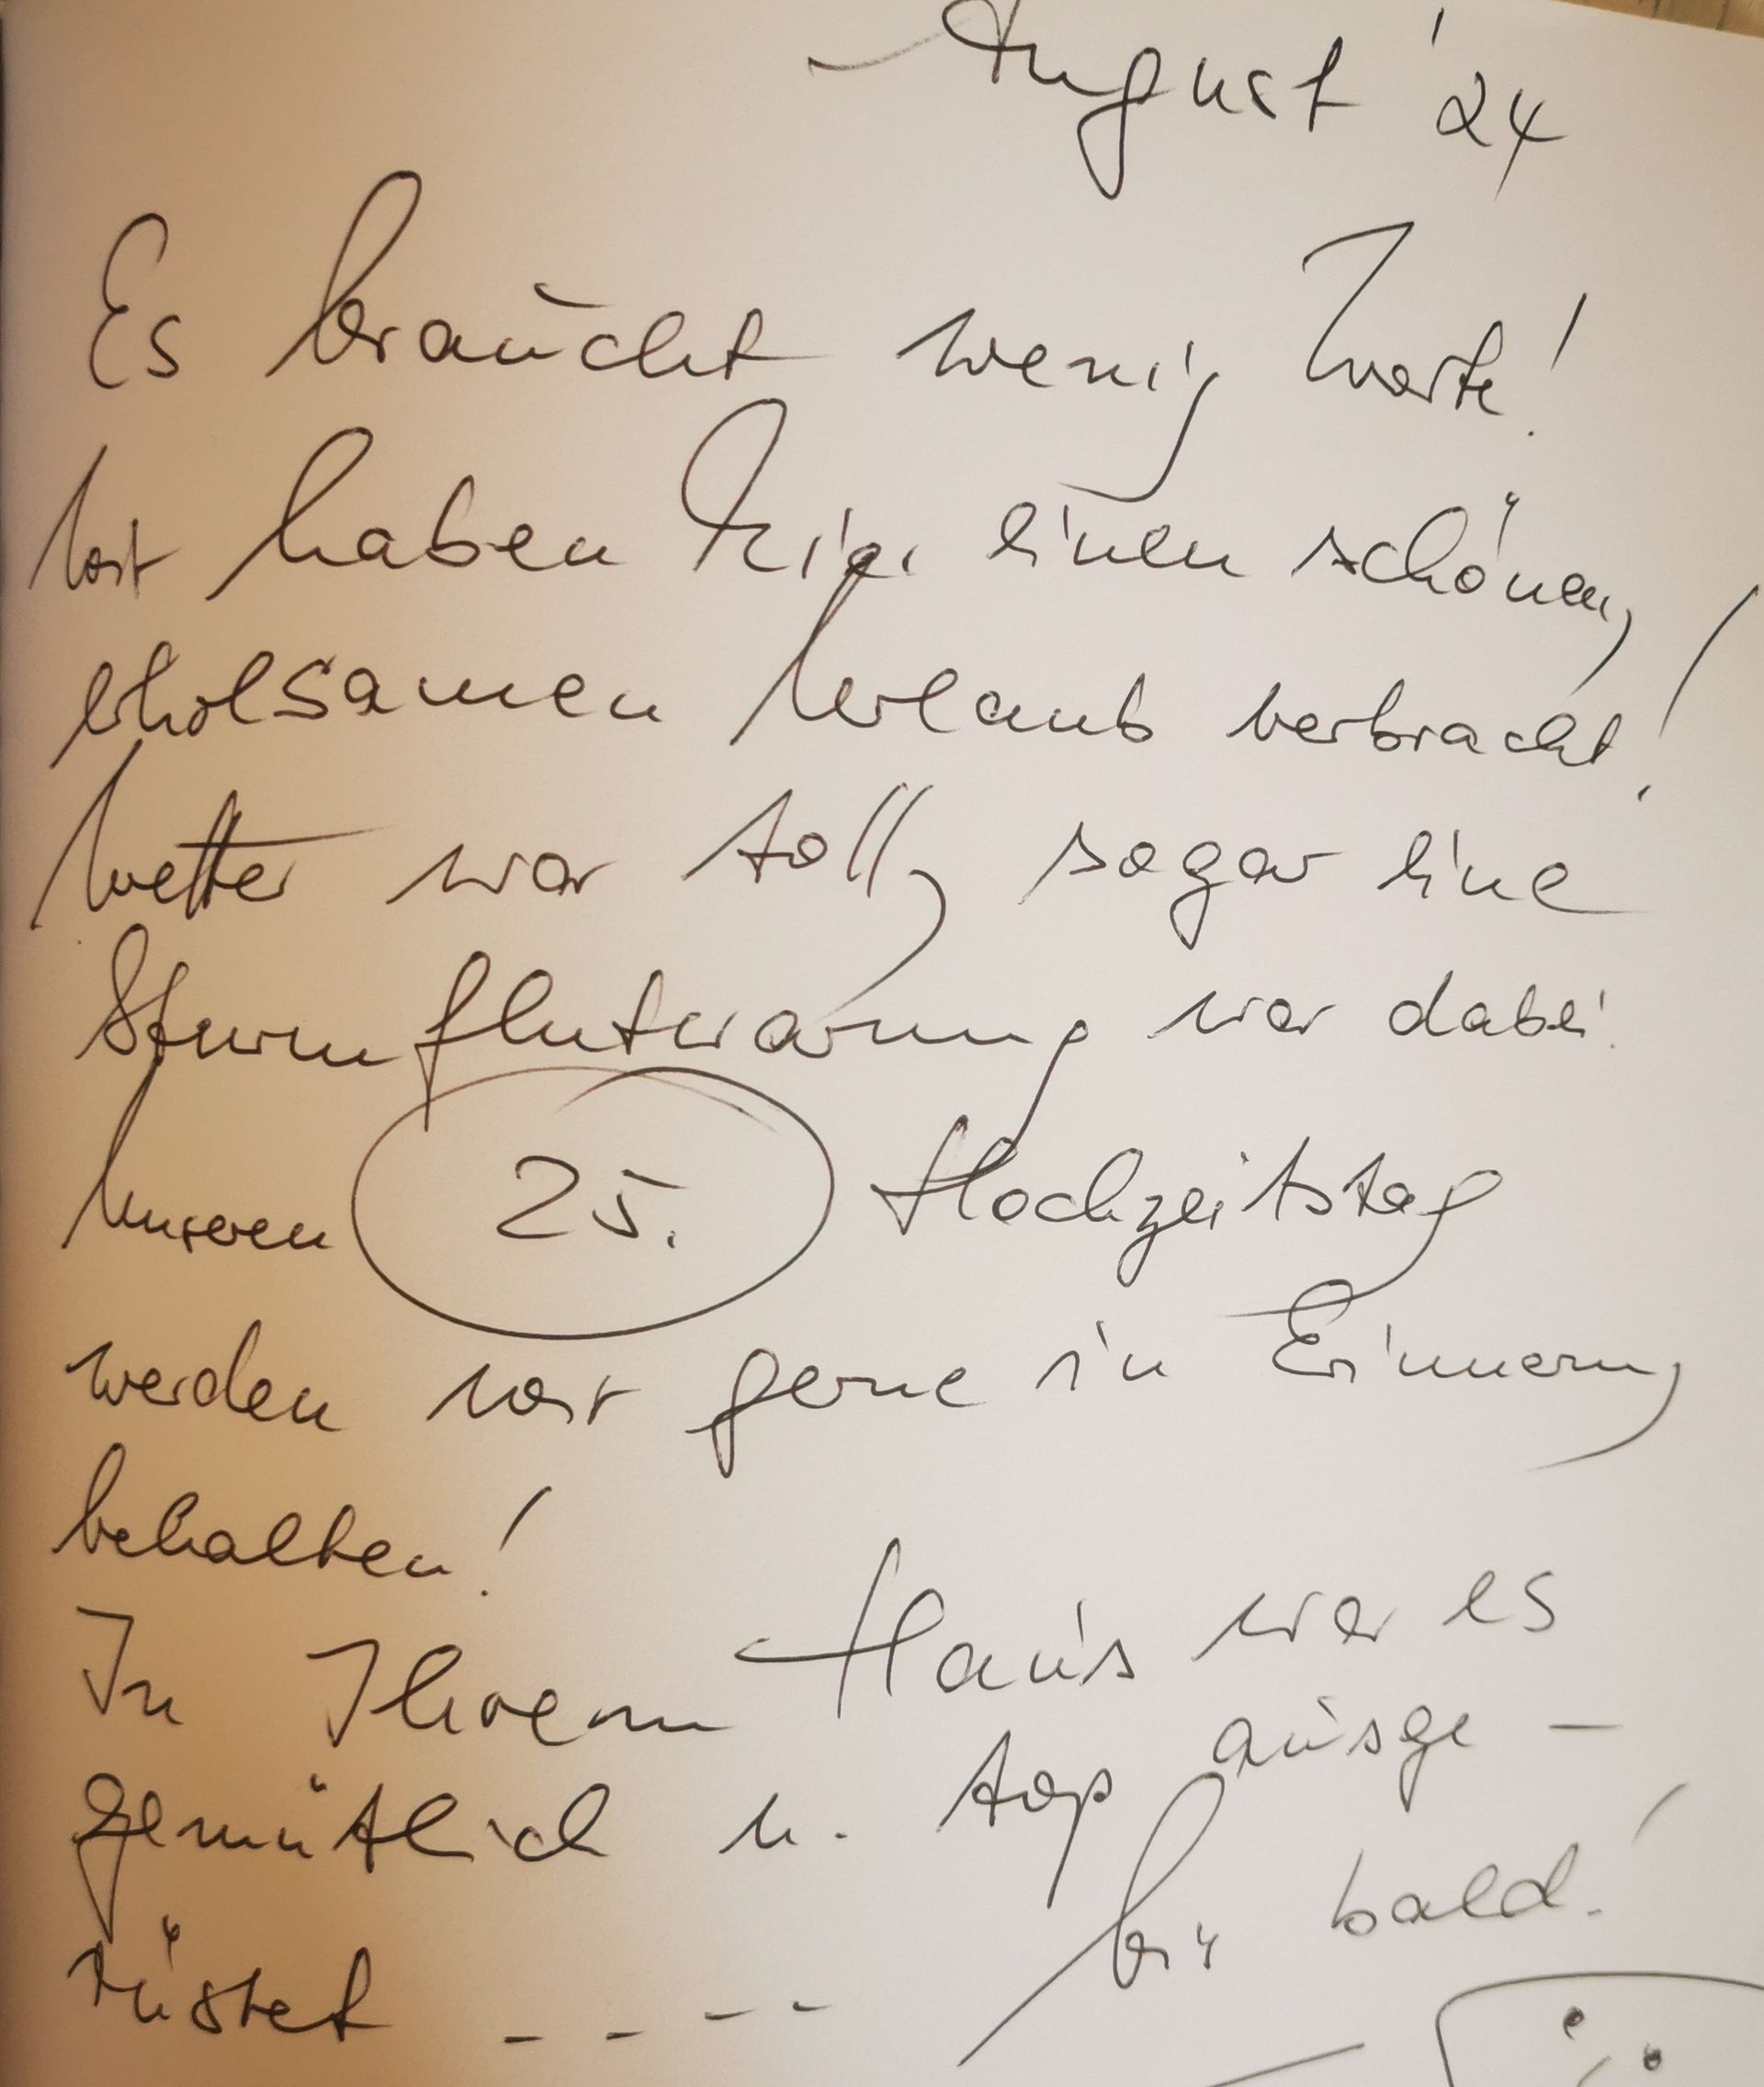 August '24
Es braucht wenig Worte!
Wir haben hier einen schönen,
erholsamen Urlaub verbracht!
Wetter war toll, sogar eine
Sturmflutwarnung war dabei.
Unseren 25. Hochzeitstag
werden wir gerne in Erinnerung
behalten!
In Ihrem Haus war es
gemütlich u. top ausge-
rüstet - - - -
bis bald!